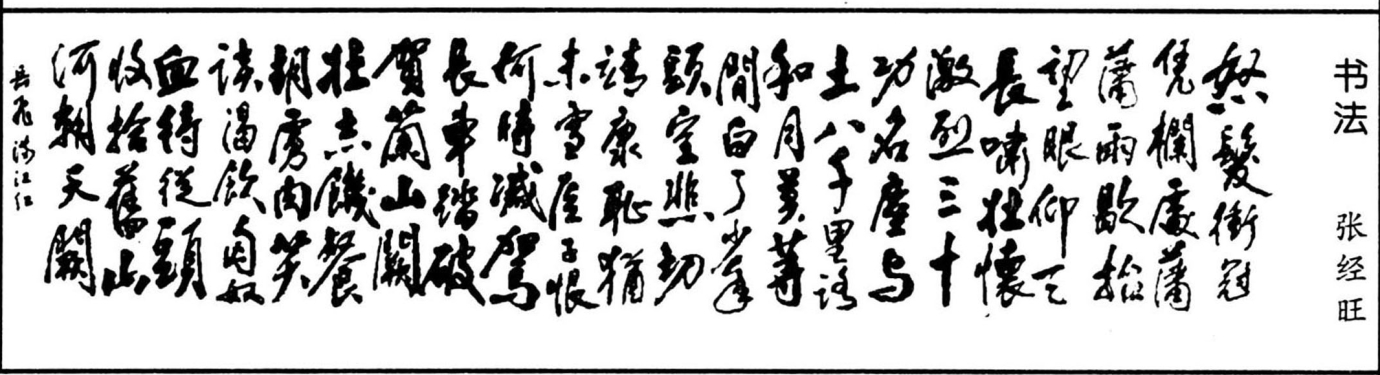 书法
张经旺
怒髮衝冠
凭欄處瀟
瀟雨歇抬
望眼仰天
長嘯壯懷
激烈三十
功名塵与
土八千里路
和月莫等
間白了少年
頭空悲切
靖康恥猶
未雪臣子恨
何時滅駕
長車踏破
賀蘭山闕
壯志饑餐
胡虜肉笑
談渴飲匈奴
血待從頭
收拾舊山
河朝天闕
岳飛滿江红